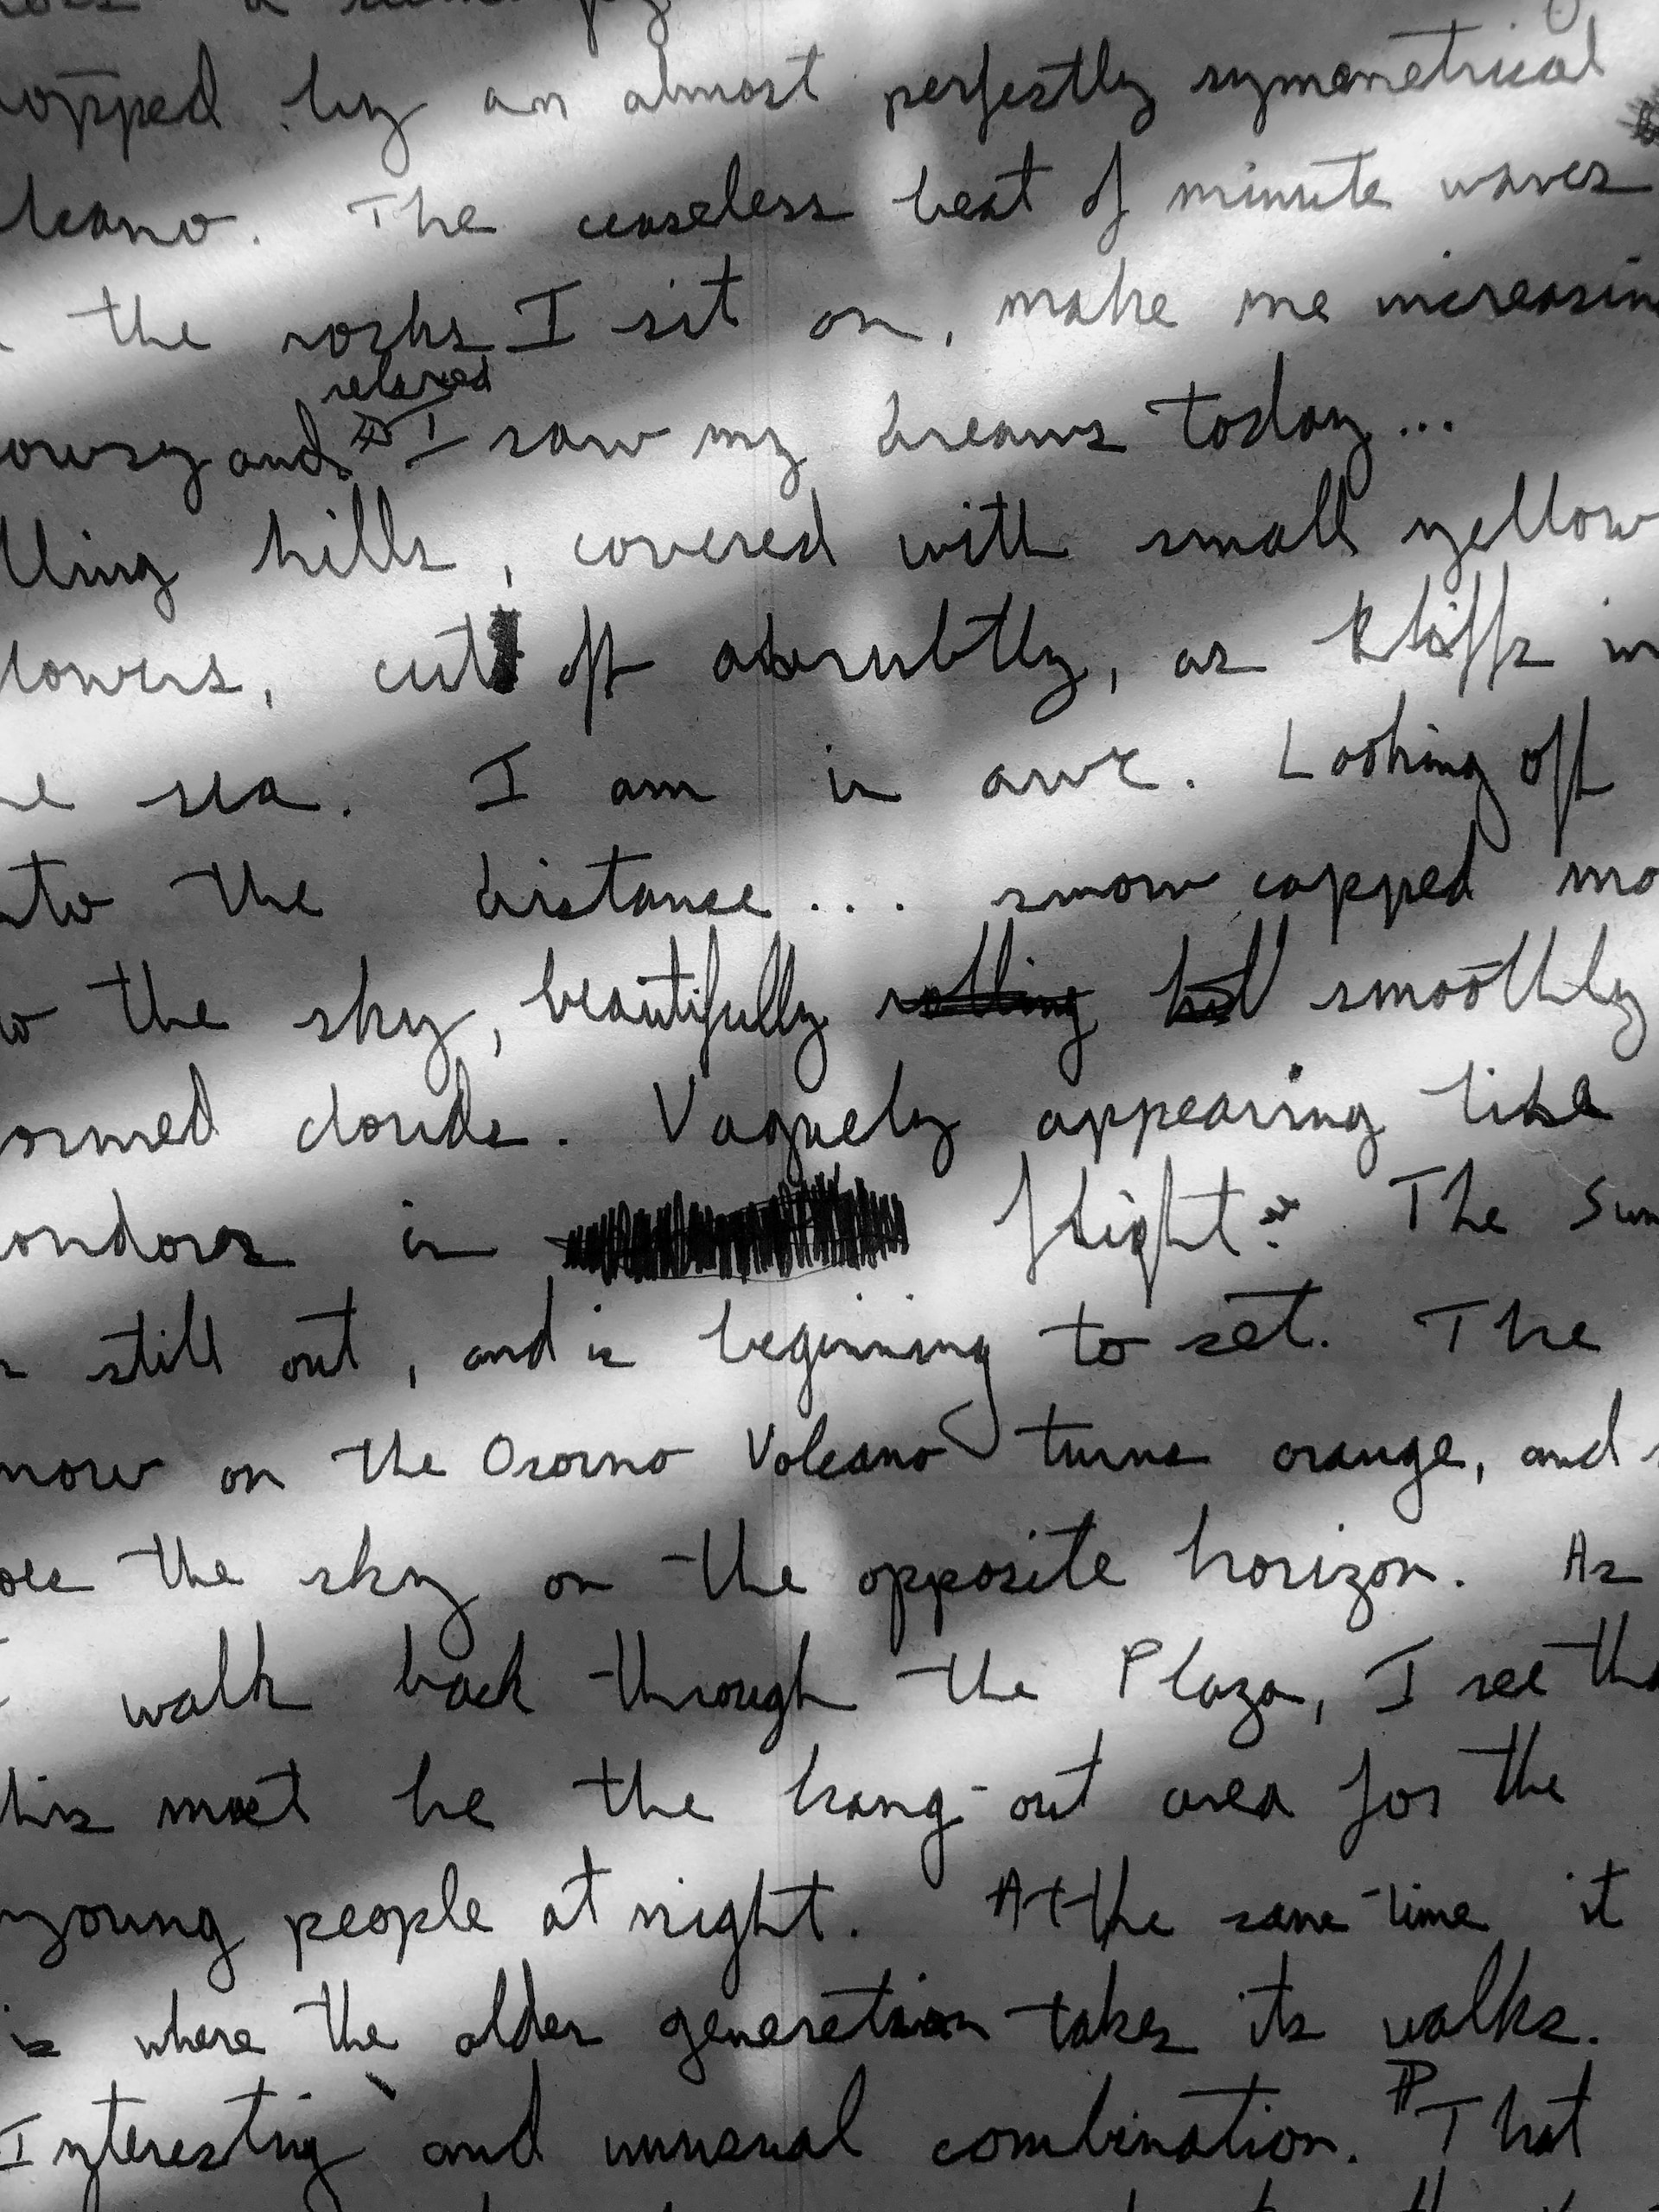 opped by an almost perfectly symmetrical
lcano. The ceaseless beat of minute waves
the rocks I sit on, make me increasin
relaxed
owsy and I saw my dreams today...
lling hills, covered with small yellow
lowers, cut off abrubtly, as kliffs in
he sea. I am in awe. Looking off
nto the distance... snow capped mo
o the sky, beautifully rolling hill smoothly
ormed clouds. Vaguely appearing like
ondores in flight. The Sun
s still out, and is beginning to set. The
now on the Osorno Volcano turns orange, and s
oes the sky on the opposite horizon. As
I walk back through the Plaza, I see tha
his must be the hang-out area for the
young people at night. At the same time it
is where the older generation takes its walks.
Interesting and unusual combination. That